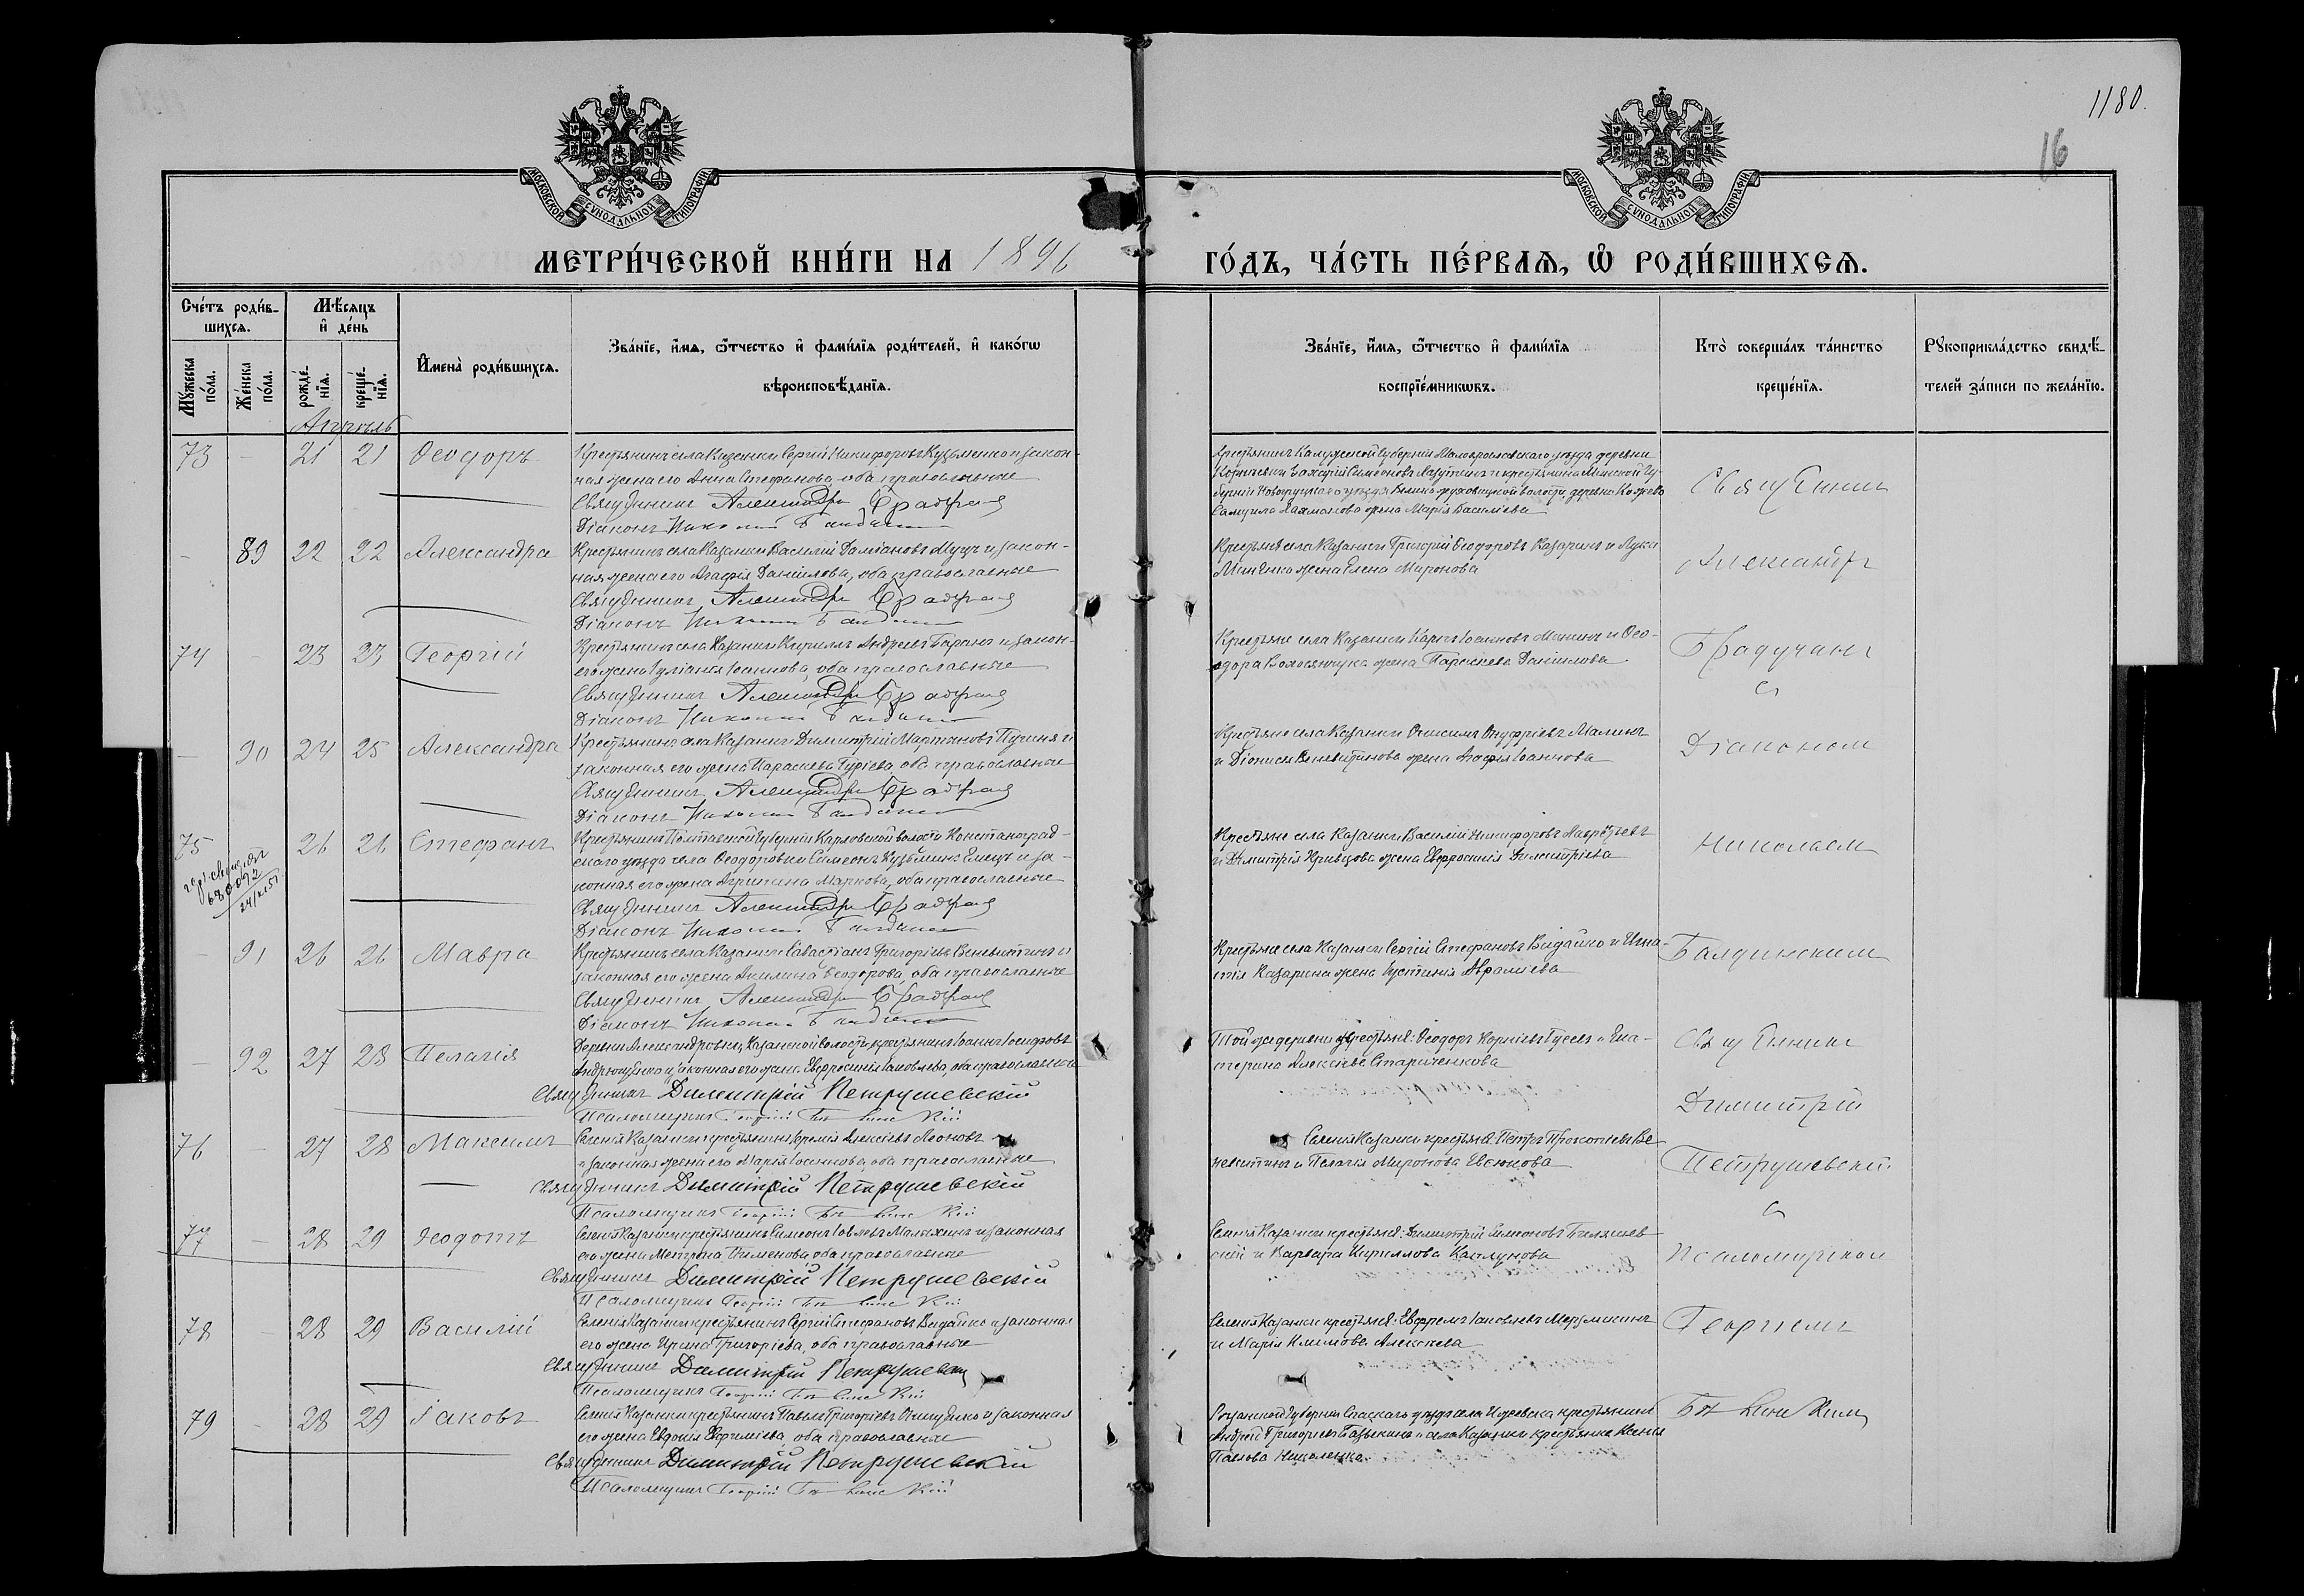 1180.
16
МОСКОВСКОЙ СѴНОДАЛЬНОЙ ТИПОГРАФІИ
МОСКОВСКОЙ СѴНОДАЛЬНОЙ ТИПОГРАФІИ
МЕТРИ́ЧЕСКОЙ КНИ́ГИ НА 1896 ГО́ДЪ, ЧА́СТЬ ПЕ́РВАѦ, Ѡ҆ РОДИ́ВШИХСѦ.
Сче́тъ роди́в-
шихсѧ.
Мѣ́сѧцъ
и҆ де́нь
Мꙋ́жеска по́ла.
Же́нска по́ла.
рожде́-нїѧ.
креще́-нїѧ.
И҆мена̀ роди́вшихсѧ.
Зва́нїе, и҆́мѧ, ѻ҆́тчество и҆ фами́лїѧ роди́телей, и҆ како́гѡ
вѣроисповѣ́данїѧ.
Зва́нїе, и҆́мѧ, ѻ҆́тчество и҆ фами́лїѧ
воспрїе́мникѡвъ.
Кто̀ соверша́лъ та́инство
креще́нїѧ.
Рꙋкоприкла́дство свидѣ́-
телей за́писи по жела́нїю.
Апрѣль
73 - 21 21 Ѳеодоръ
Крестьянинъ села Казанки Сергій Никифоровъ Кузьменко и закон-
ная жена его Анна Стефанова, оба православные
Священникъ Александръ Брадучанъ
Діаконъ Николай
Крестьянинъ Калужской губерніи Малоярославскаго уѣзда деревни
Симеоновъ и крестьянина Минской гу-
берніи уѣзда волости, деревни
Самуила жена Марія Василіева
Священникъ
- 89 22 22 Александра
Крестьянинъ села Казанки Василій Даміановъ Муцъ и закон-
ная жена его Агафія Даніилова, оба православные
Священникъ Александръ Брадучанъ
Діаконъ Николай
Крестьяне села Казанки Григорій Ѳеодоровъ Казаринъ и Луки
Миненко жена Елена Миронова
Александръ
74 - 23 23 Георгій
Крестьянинъ села Казанки Кириллъ Андреевъ Баранъ и закон-
его жена Іуліанія Іоаннова, оба православные
Священникъ Александръ Брадучанъ
Діаконъ Николай
Крестьяне села Казанки Карпъ Іоанновъ Мининъ и Ѳео-
дора жена Параскева Даніилова
Брадучанъ
съ
- 90 24 25 Александра
Крестьянинъ села Казанки Димитрій Мартиновъ и
законная его жена Параскева Гуріева, оба православные
Священникъ Александръ Брадучанъ
Діаконъ Николай
Крестьяне села Казанки Онисимъ Онуфріевъ Малинъ
и Діонисія Веневитинова жена Агафія Іоаннова
Діакономъ
75 26 26 Стефанъ
68092
Крестьянинъ Полтавской губерніи Карловской волости Константиноград-
скаго уѣзда села Ѳеодоровки Симеонъ Кузьминъ Емецъ и за-
конная его жена Агрипина Маркова, оба православные
Священникъ Александръ Брадучанъ
Діаконъ Николай
Крестьяне села Казанки Василій Никифоровъ Лаврентьевъ
и Димитрія Кривцова жена Евфросинія Димитріева
Николаемъ
- 91 26 26 Мавра
Крестьянинъ села Казанки Савастіанъ Григоріевъ Веневитинъ и
законная его жена Акилина Ѳеодорова, оба православные
Священникъ Александръ Брадучанъ
Діаконъ Николай
Крестьяне села Казанки Сергій Стефановъ Видайко и Игна-
тія Казарина жена Іустинія Авраміева
- 92 27 28 Пелагія
Деревни Александровки, Казанской волости, крестьянинъ Іоаннъ Іосифовъ
Андрющенко и законная его жена Евфросинія Іаковлева, оба православные
Священникъ Димитрій Петрушевскій
Псаломщикъ Георгій
Той же деревни крестьяне: Ѳеодоръ Корніевъ Гусевъ и Ека-
терина Алексѣева Стариченкова
Священникъ
Димитрій
76 - 27 28 Максимъ
Селенія Казанки крестьянинъ Іеремія Алексѣевъ Леоновъ
и законная жена его Марія Іоаннова, оба православные
Священникъ Димитрій Петрушевскій
Псаломщикъ Георгій
Селенія Казанки крестьяне: Петръ Прокопіевъ Ве-
невитинъ и Пелагія Миронова Евсюкова
Петрушевскій
съ
77 - 28 29 Ѳеодотъ
Селенія Казанки крестьянинъ Симеонъ Іовлевъ Малахинъ и законная
его жена Матрона, оба православные
Священникъ Димитрій Петрушевскій
Псаломщикъ Георгій
Селенія Казанки крестьяне: Димитрій Симеоновъ
и Варвара Кириллова
Псаломщикомъ
78 - 28 29 Василій
Селенія Казанки крестьянинъ Сергій Стефановъ Видайко и законная
его жена Ирина Григоріева, оба православные
Священникъ Димитрій Петрушевскій
Псаломщикъ Георгій
Селенія Казанки крестьяне: Евфремъ Іаковлевъ
и Марія Климова Алексѣева
Георгіемъ
79 - 28 29 Іаковъ
Селенія Казанки крестьянинъ Павелъ Григоріевъ Онищенко и законная
его жена Евдокія Евфиміева, оба православные
Священникъ Димитрій Петрушевскій
Псаломщикъ Георгій
Рязанской губерніи Спасскаго уѣзда села Ижевска крестьянинъ
Андрей Григоріевъ и села Казанки крестьянка Ксенія
Павлова Николенко